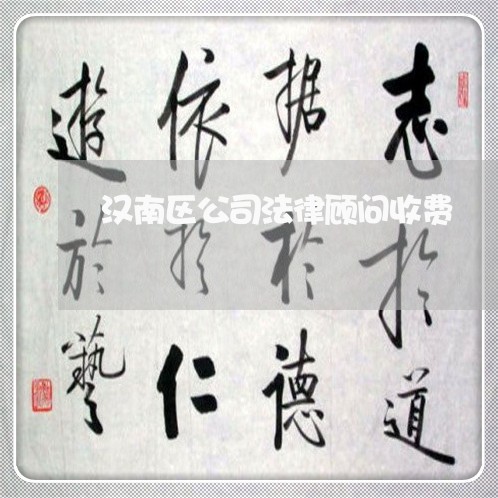 志於道
据於德
依於仁
遊於藝
汉南区公司法律顾问收费